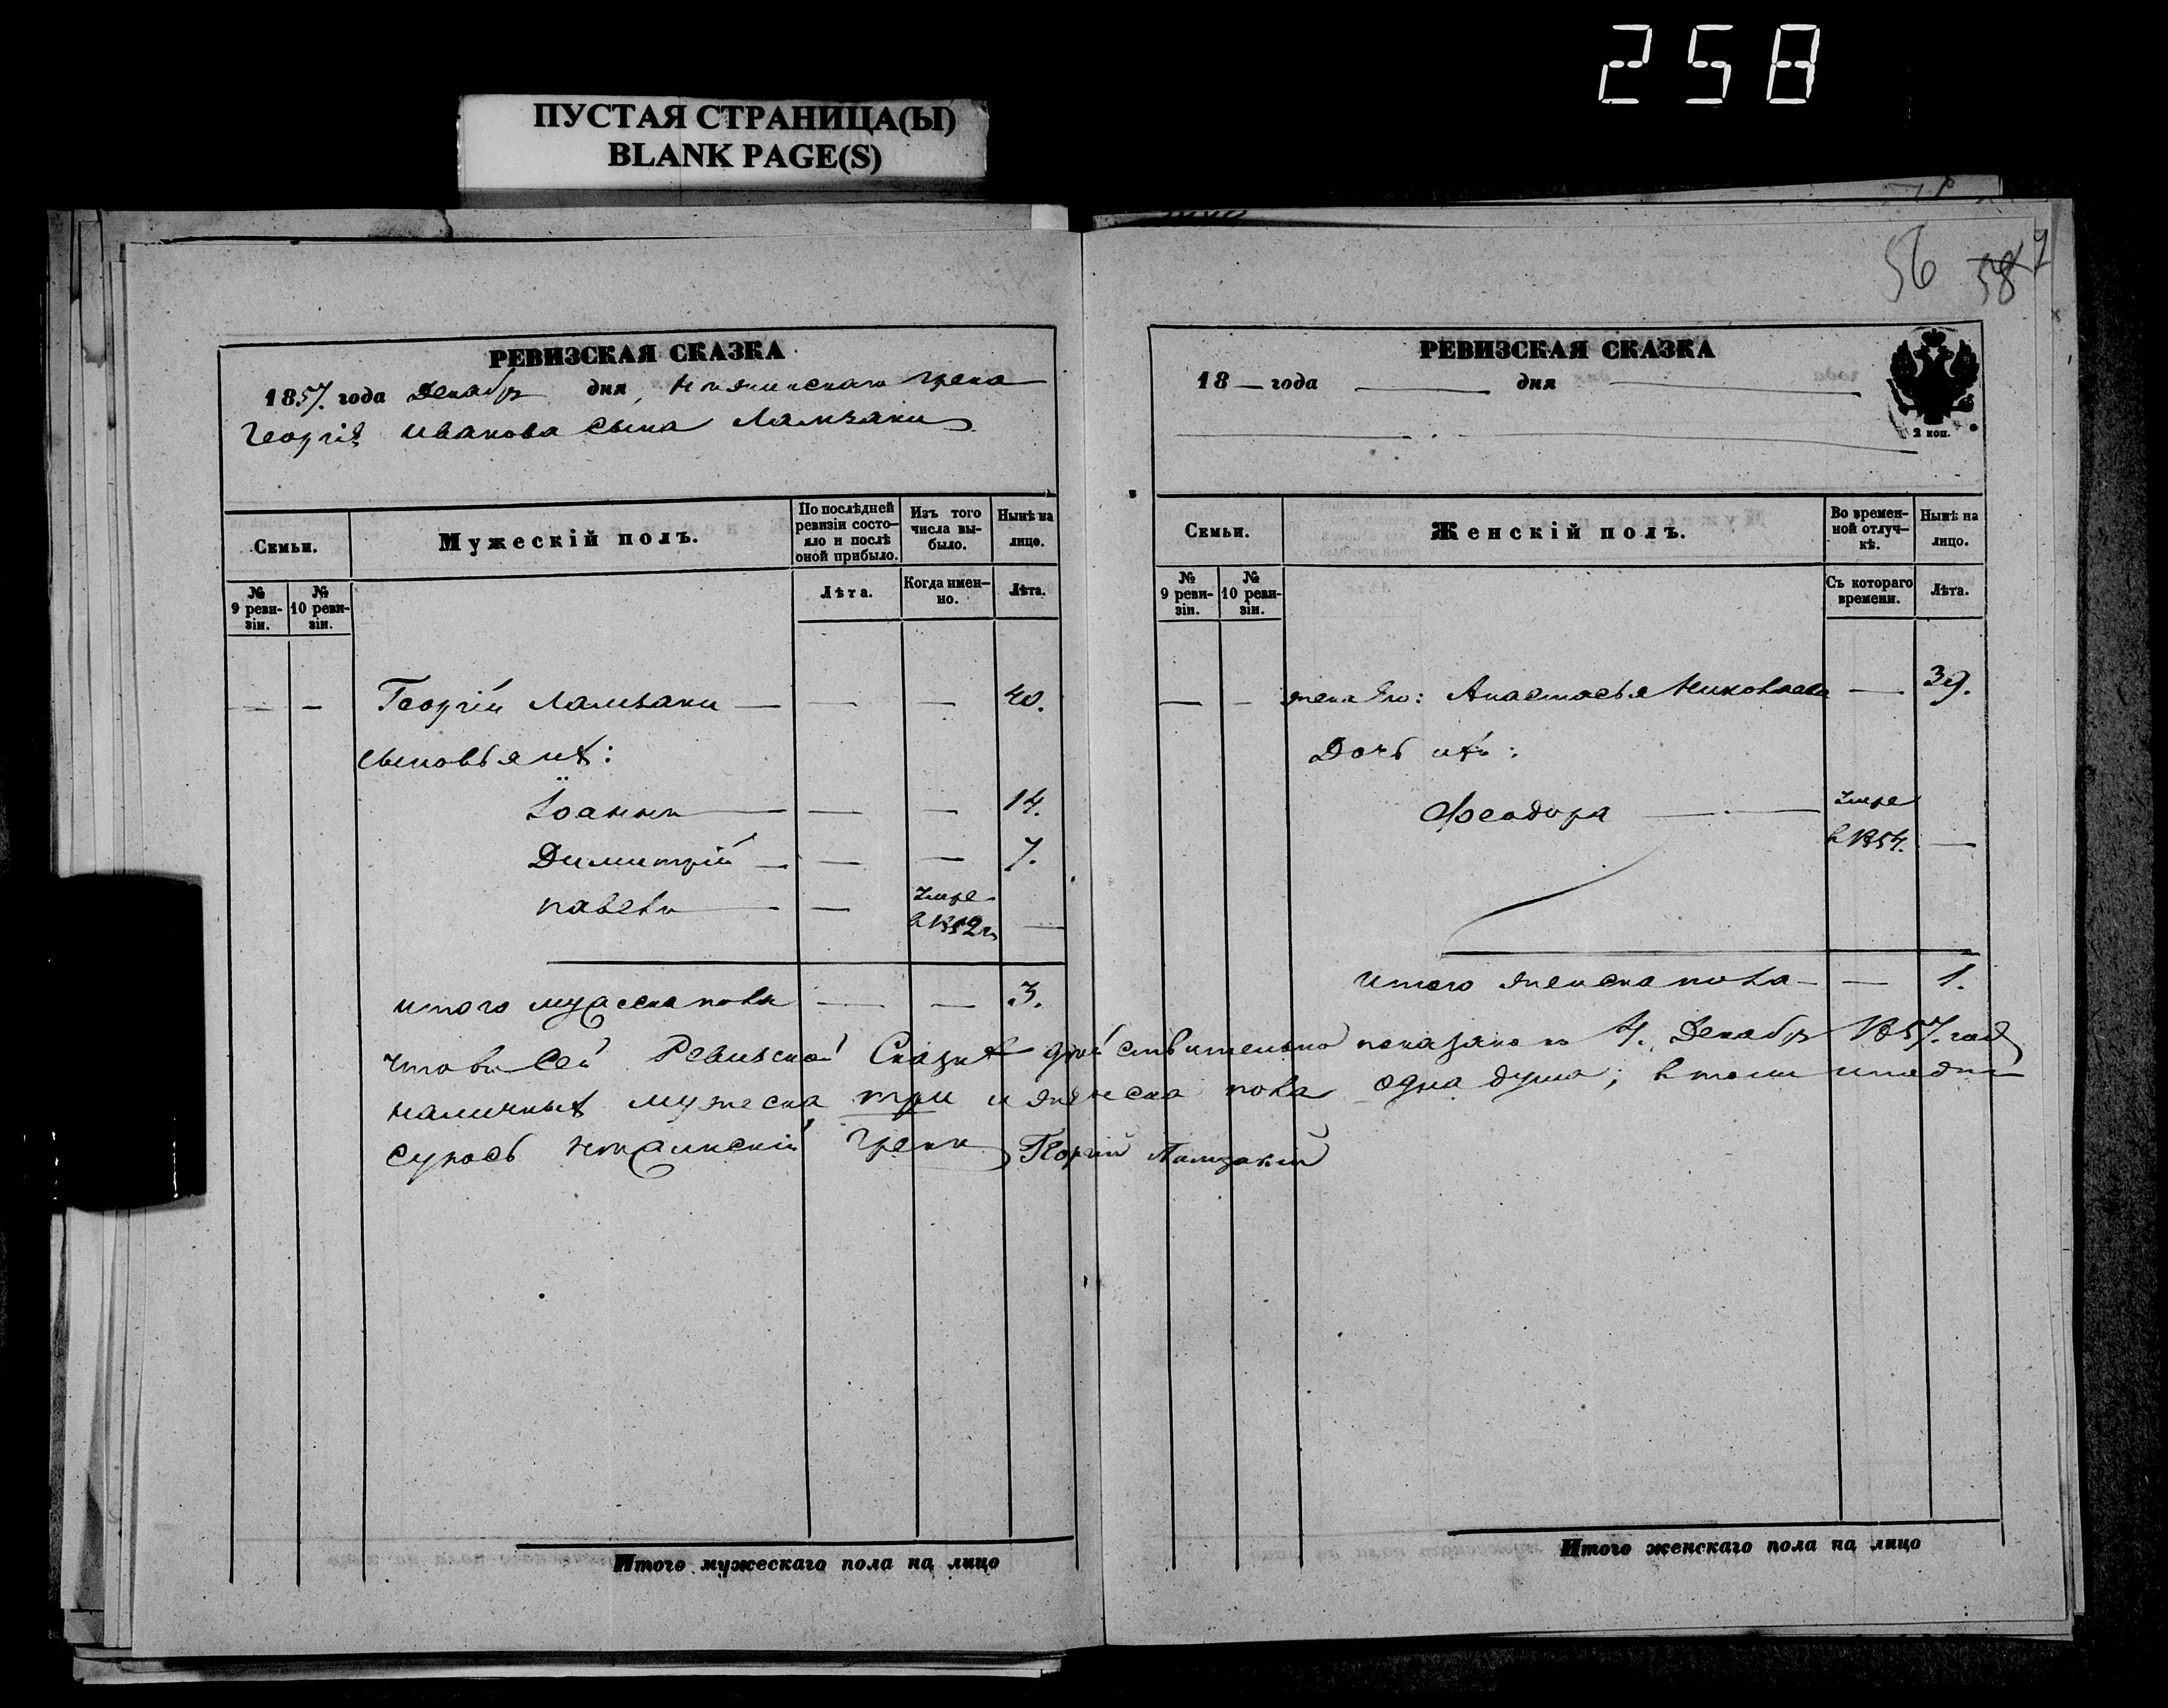 258
ПУСТАЯ СТРАНИЦА(Ы)
BLANK PAGE(S)
РЕВИЗСКАЯ СКАЗКА
1857. года Декабря дня, грека
Георгія Иванова сына Ламзаки
Семьи.
Мужескій полъ.
По послѣдней ревизіи состо-
яло и послѣ оной прибыло.
Изъ того числа вы-
было.
Нынѣ на лицо.
№ 9 реви-
зіи.
№ 10 реви-
зіи.
Лѣта.
Когда имен-
но.
Лѣта.
— — Георгій Ламзаки — — — 40.
сыновья ихъ:
Іоаннъ — — — 14.
Димитрій — — — 7.
павелъ — — Умре в 1852 г. —
итого мужеска пола — — 3.
56 58 7
РЕВИЗСКАЯ СКАЗКА
18 — года — дня —
2 коп.
Семьи.
Женскій полъ.
Во времен-
ной отлуч-
кѣ.
Нынѣ на лицо.
№ 9 реви-
зіи.
№ 10 реви-
зіи.
Съ котораго времени.
Лѣта.
— — жена Его: Анастасья Николаева — 39.
Дочь ихъ:
Феодора — Умре в 1854. —
итого женска пола — — 1.
что въ сей Ревизской Сказкѣ действительно показано Декабря 1857. года
наличныхъ мужеска три и женска пола одна душа; в томъ и подпи
суюсь грекъ Георгій Ламзакій
Итого мужескаго пола на лицо
Итого женскаго пола на лицо